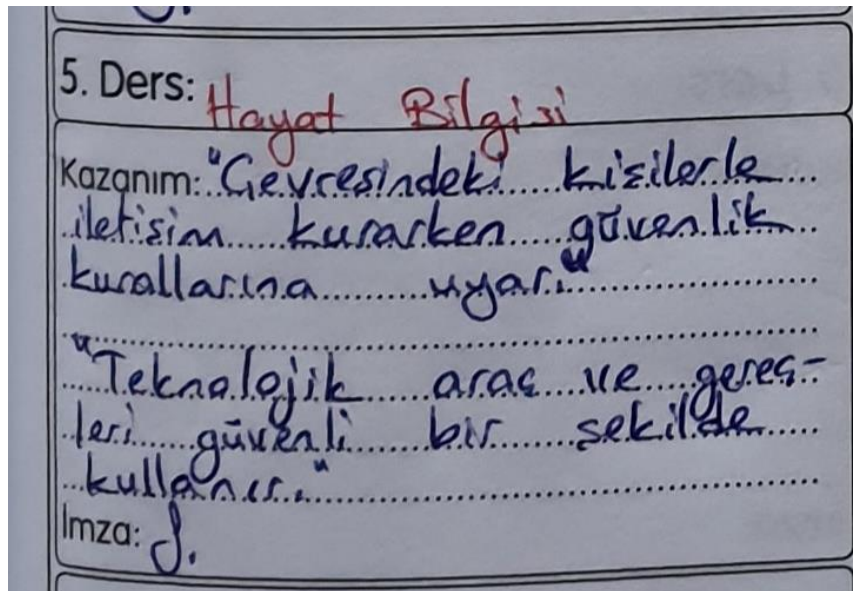 5. Ders: Hayat Bilgisi
Kazanım: "Çevresindeki kişilerle
iletişim kurarken güvenlik
kurallarına uyar."
"Teknolojik araç ve gereç-
leri güvenli bir şekilde
kullanır."
İmza: